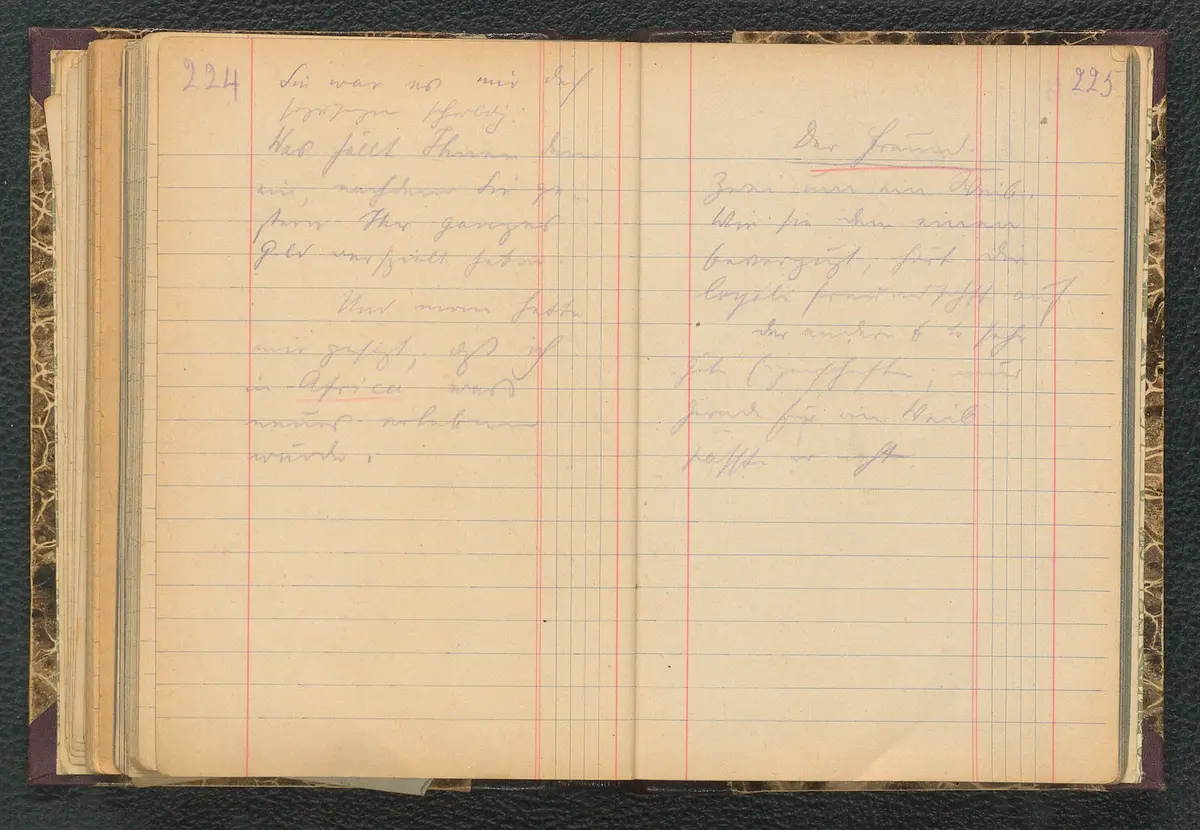 224
Sie war es mir doch
sozusagen schuldig.
Was fällt Ihnen denn
ein, nachdem Sie ge-
stern Ihr ganzes
Geld verspielt haben.
Und man hatte
mir gesagt, dß ich
in Africa was
neues erleben
würde.
225
Der Freund.
Zwei um ein Weib.
Wie sie den einen
bevorzugt, hört die
loyale Freundschft auf.
Der andere h so sehr
gute Eigenschaften; nur
gerade für ein Weib
passte er nicht.